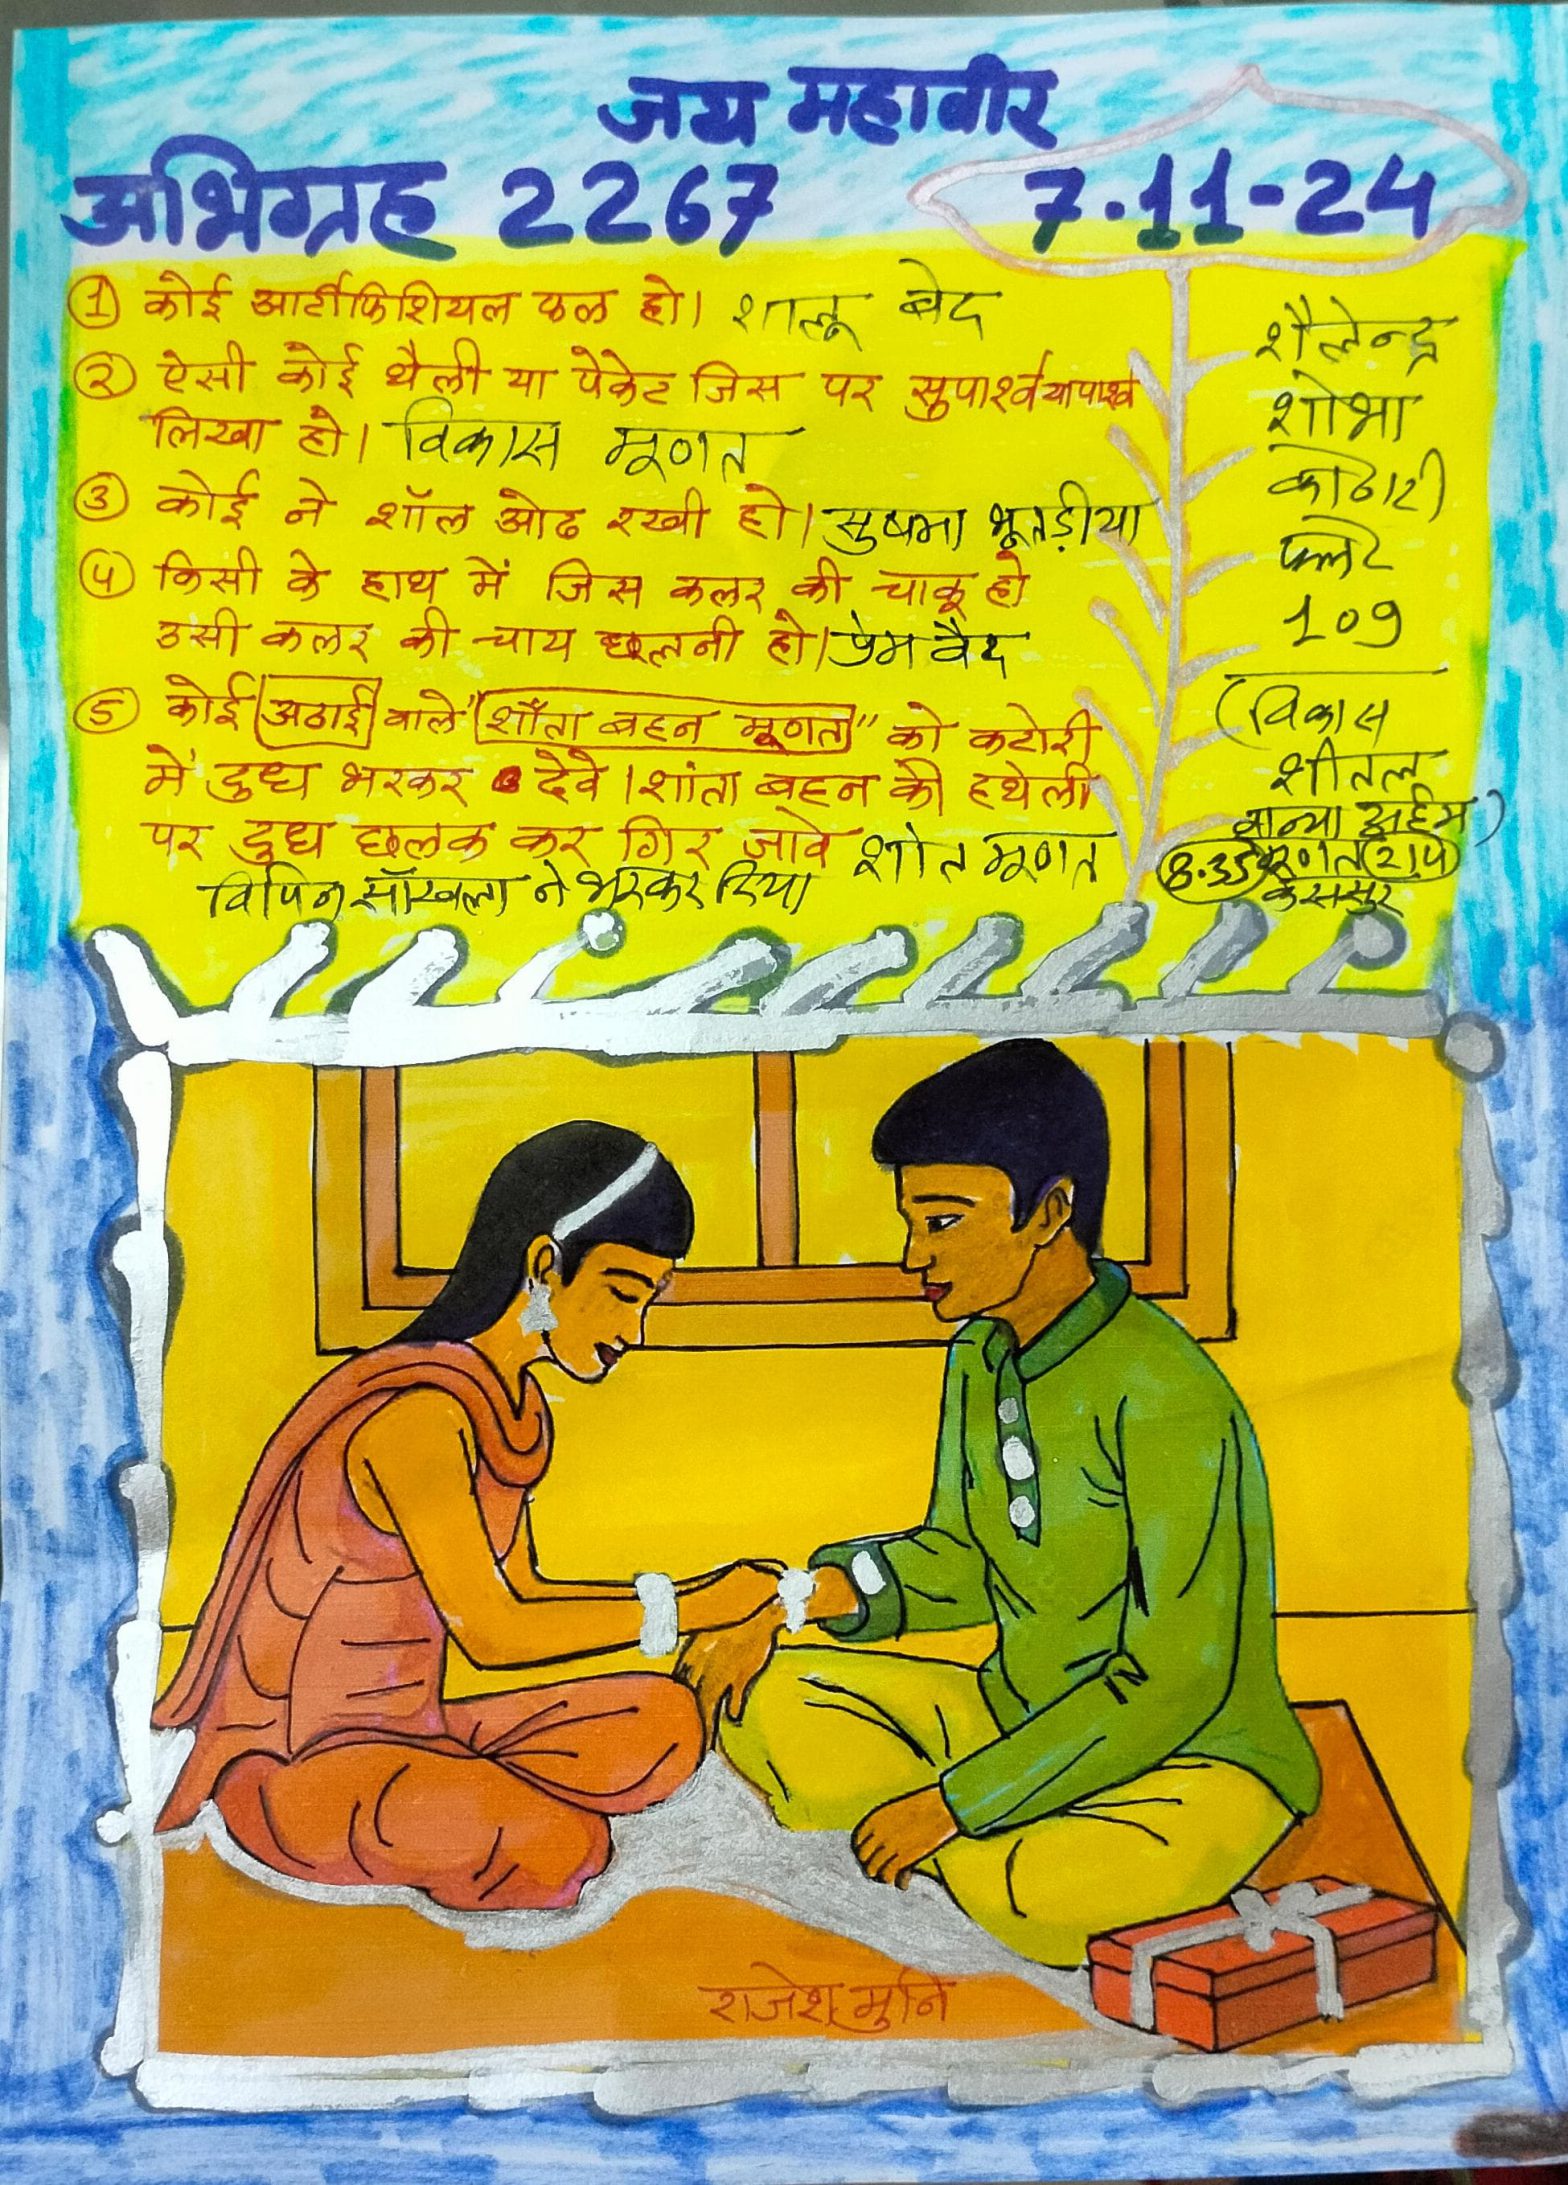 जय महावीर
अभिग्रह 2267 7.11-24
① कोई आर्टीफिशियल फल हो। शालू बेद
② ऐसी कोई थैली या पेकेट जिस पर सुपार्श्व या पार्श्व
लिखा हो। विकास मूणत
③ कोई ने शॉल ओढ रखी हो। सुषमा भूतड़ीया
④ किसी के हाथ में जिस कलर की चाकू हो
उसी कलर की चाय छलनी हो। प्रेम वैद
⑤ कोई अठाई वाले "शाँता बहन मूणत" को कटोरी
में दुध भरकर देवे। शांता बहन की हथेली
पर दुध छलक कर गिर जावे शांत मूणत
विपिन साँखला ने भरकर दिया
शैलेन्द्र
शोभा
कोठारी
फ्लेट
109
(विकास
शीतल
मान्या अर्हम)
मूणत
के ससुर
राजेश मुनि